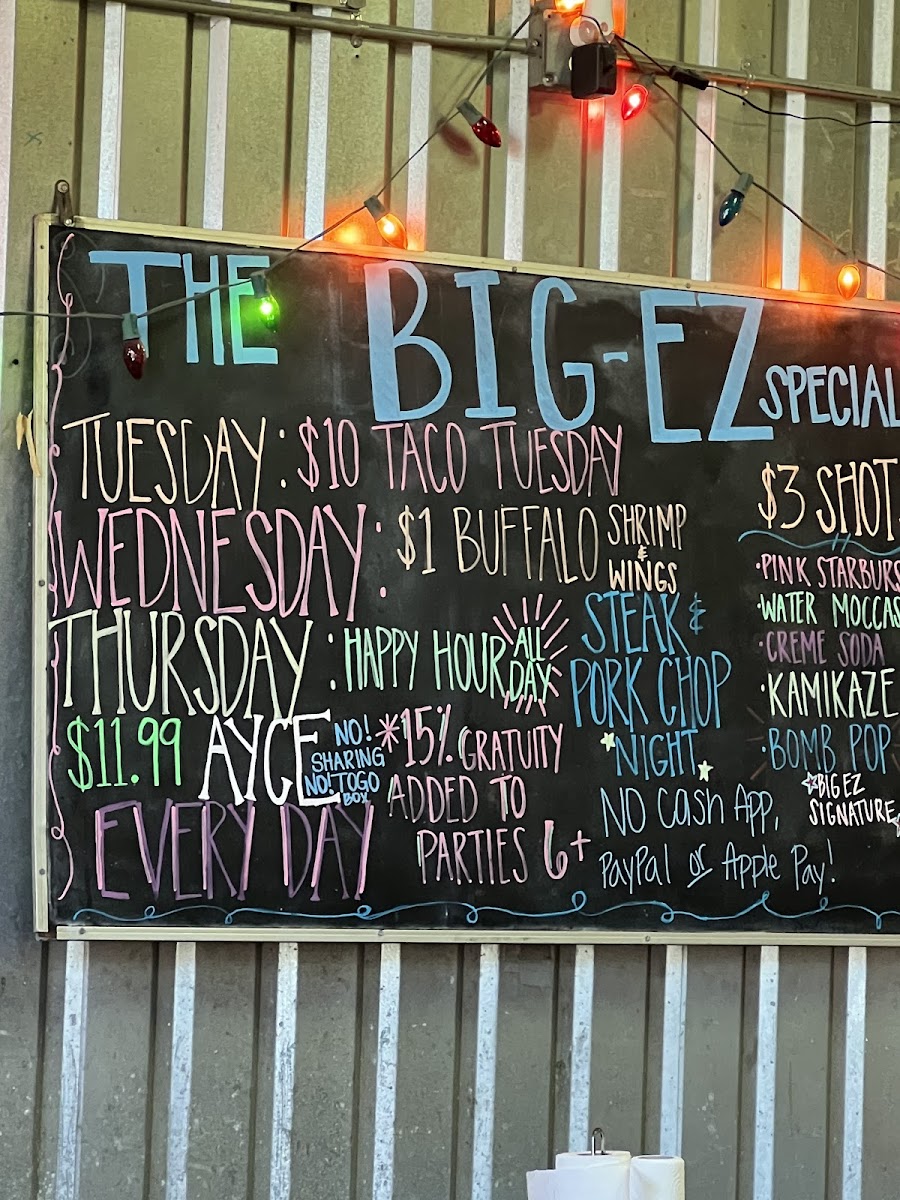 THE BIG-EZ SPECIAL
TUESDAY: $10 TACO TUESDAY
WEDNESDAY: $1 BUFFALO SHRIMP
&
WINGS
THURSDAY: HAPPY HOUR ALL
DAY
STEAK &
PORK CHOP
NIGHT
$11.99 AYCE
NO!
SHARING
NO! TOGO
BOX
EVERY DAY
*15% GRATUITY
ADDED TO
PARTIES 6+
NO Cash App,
PayPal or Apple Pay!
$3 SHOT
·PINK STARBURS
·WATER MOCCAS
·CREME SODA
·KAMIKAZE
·BOMB POP
☆BIG EZ
SIGNATURE☆